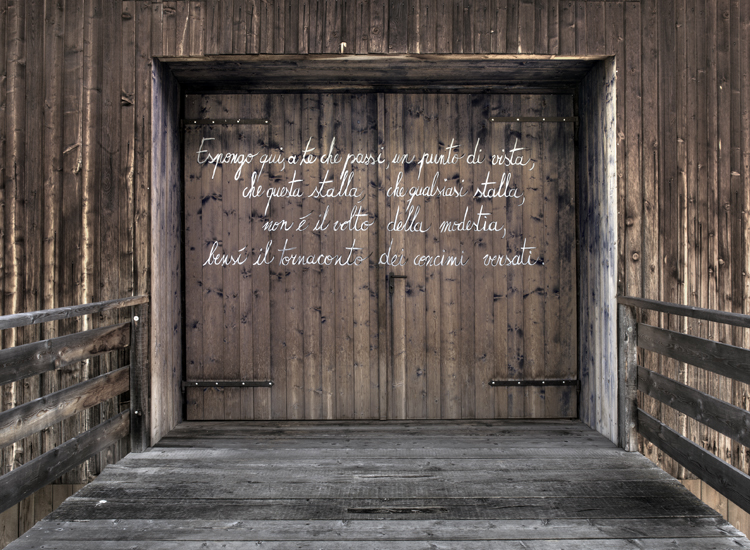 Espongo qui, a te che passi, un punto di vista,
che questa stalla, che qualsiasi stalla,
non é il volto della modestia,
bensí il tornaconto dei concimi versati.